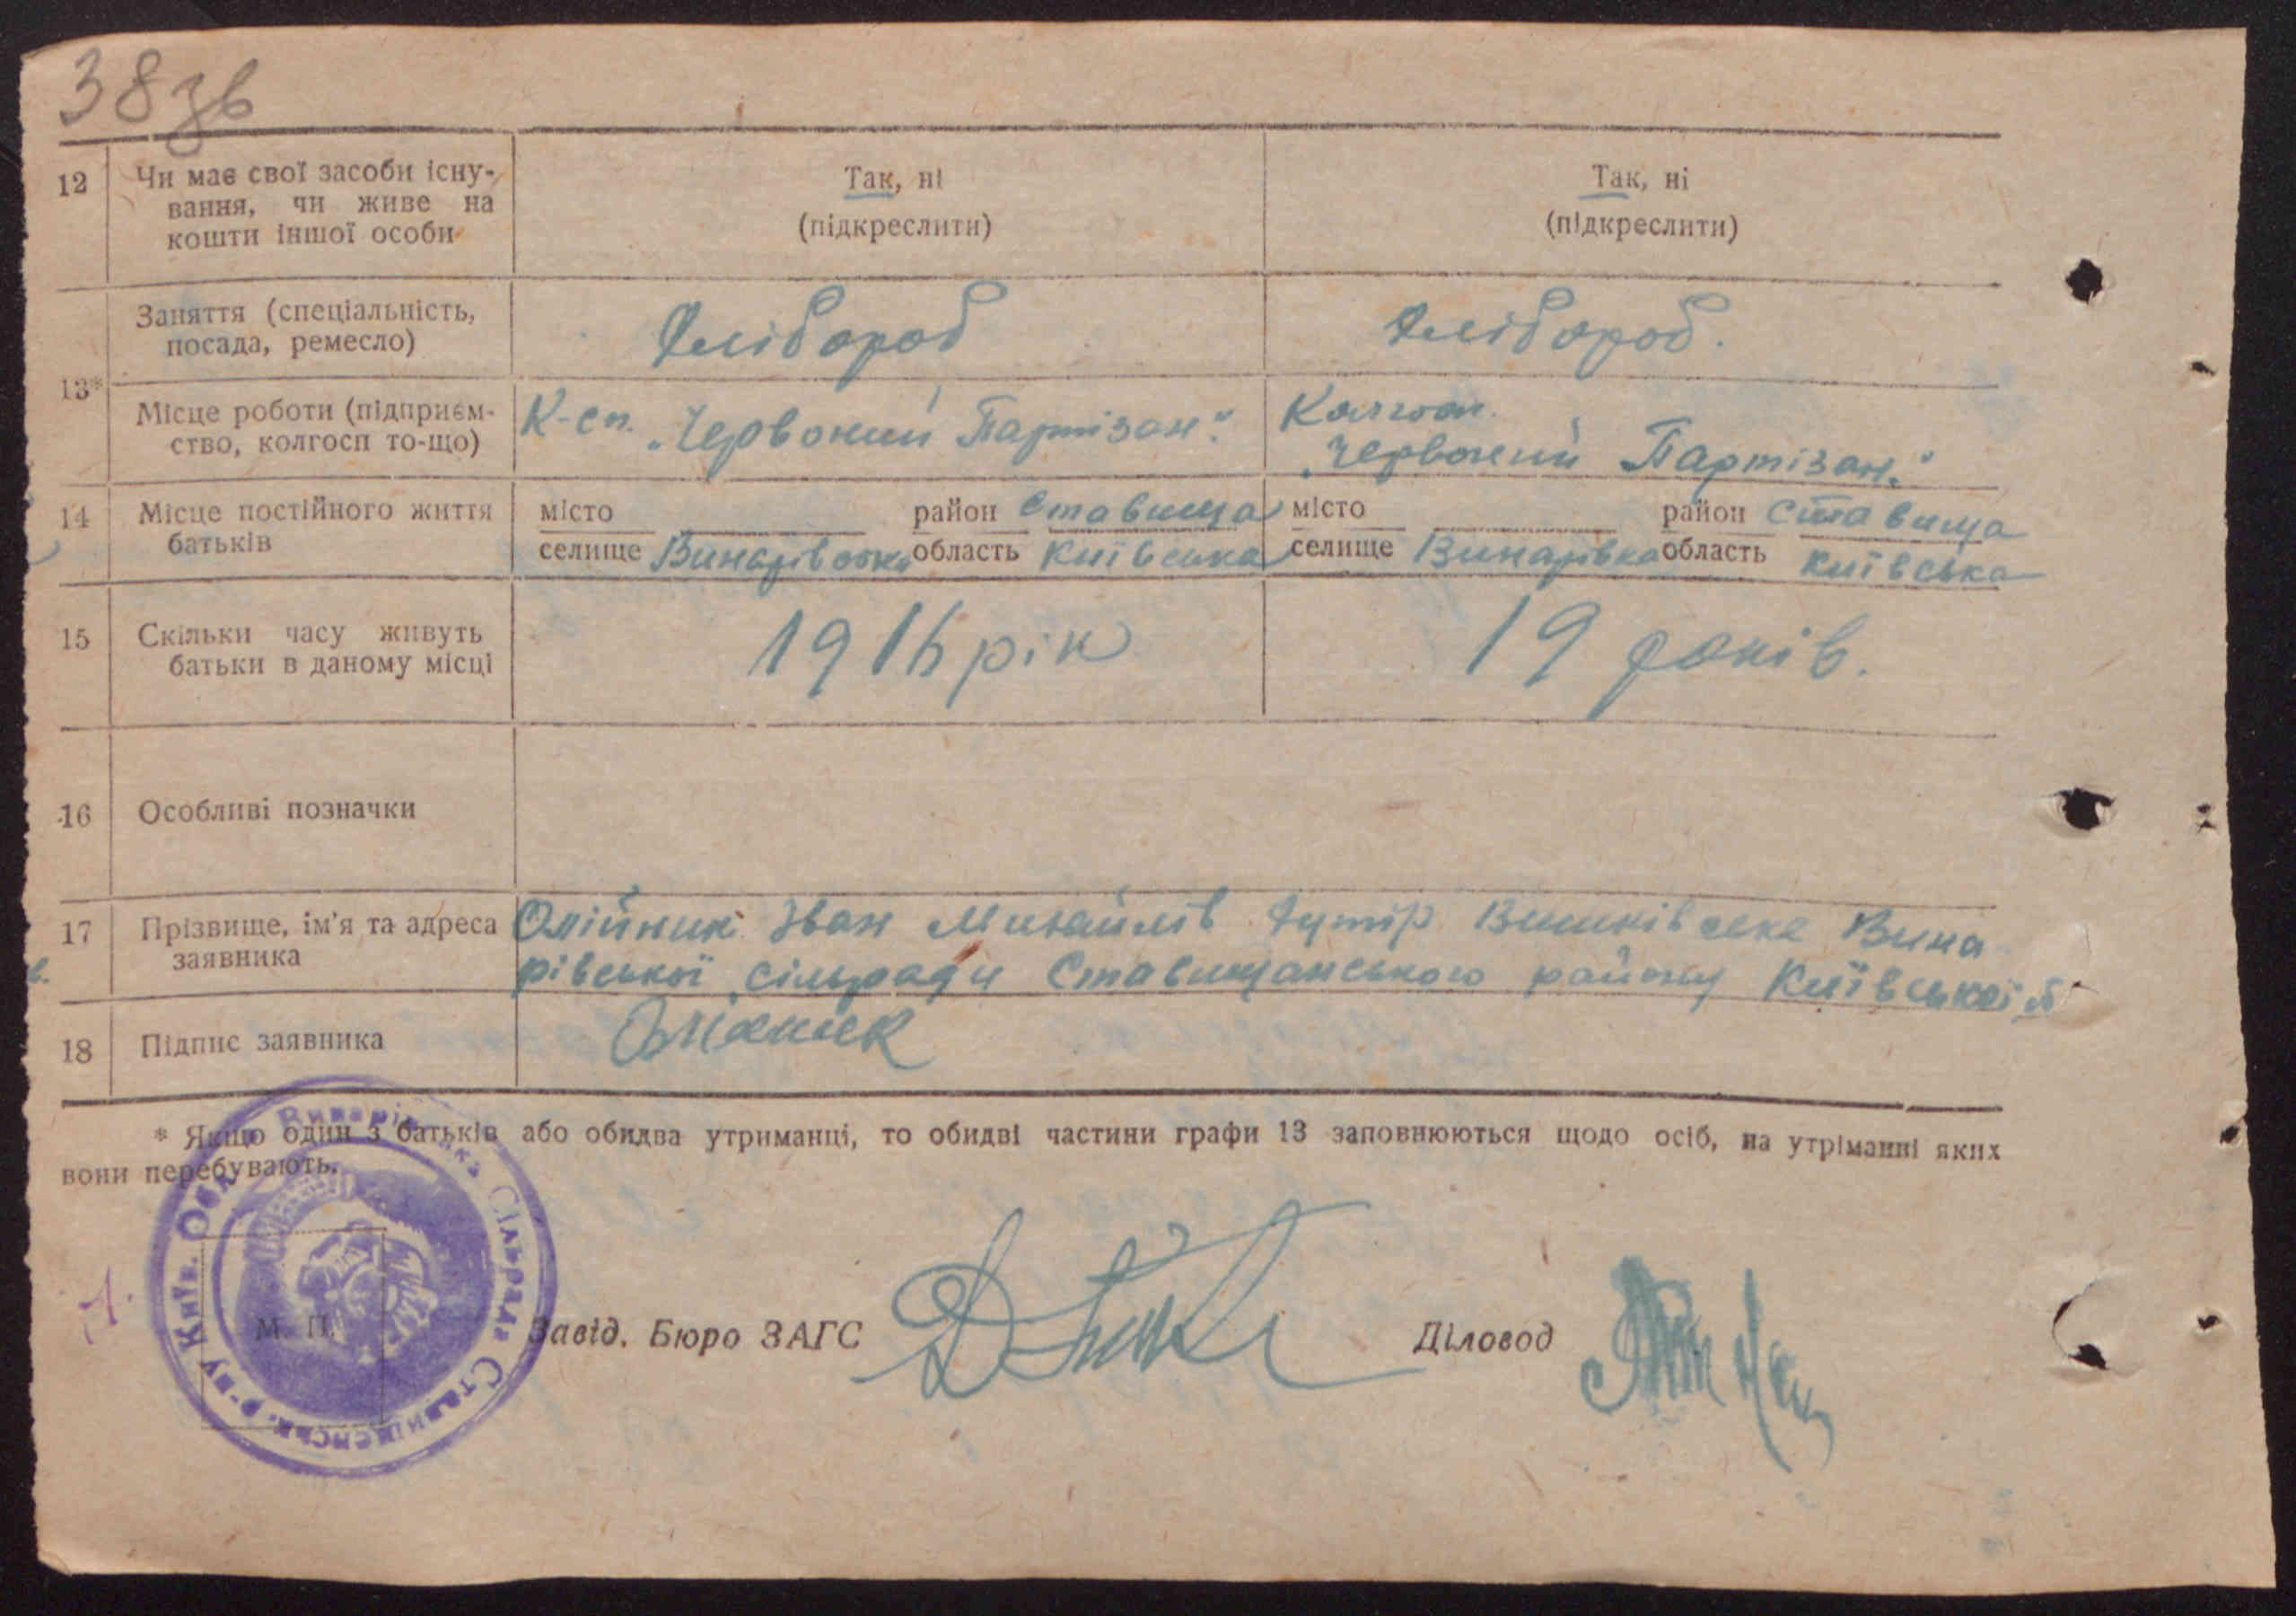 38зв
12 Чи має свої засоби існу- Так, ні Так, ні
вання, чи живе на
кошти іншої особи (підкреслити) (підкреслити)
Заняття (спеціальність, Хлібороб Хлібороб.
посада, ремесло)
13*
Місце роботи (підприєм- К-сп. „Червоний Партізан“. Колгосп.
ство, колгосп то-що) „Червоний Партізан.“
14 Місце постійного життя місто район Ставища місто район Ставища
батьків селище область Київська селище Винарівка область Київська
15 Скільки часу живуть 19 рік 19 років.
батьки в даному місці
16 Особливі позначки
17 Прізвище, ім'я та адреса Олійник Іван Михайлів Хутір Вина
заявника рівської сільради Ставищанського району Київської
18 Підпис заявника
* Якщо один з батьків або обидва утриманці, то обидві частини графи 13 заповнюються щодо осіб, на утріманні яких
вони перебувають.
Винарівська Сільрада Ставищенськ. р-ну Київ. Обл.
М. П.
Завід. Бюро ЗАГС Діловод